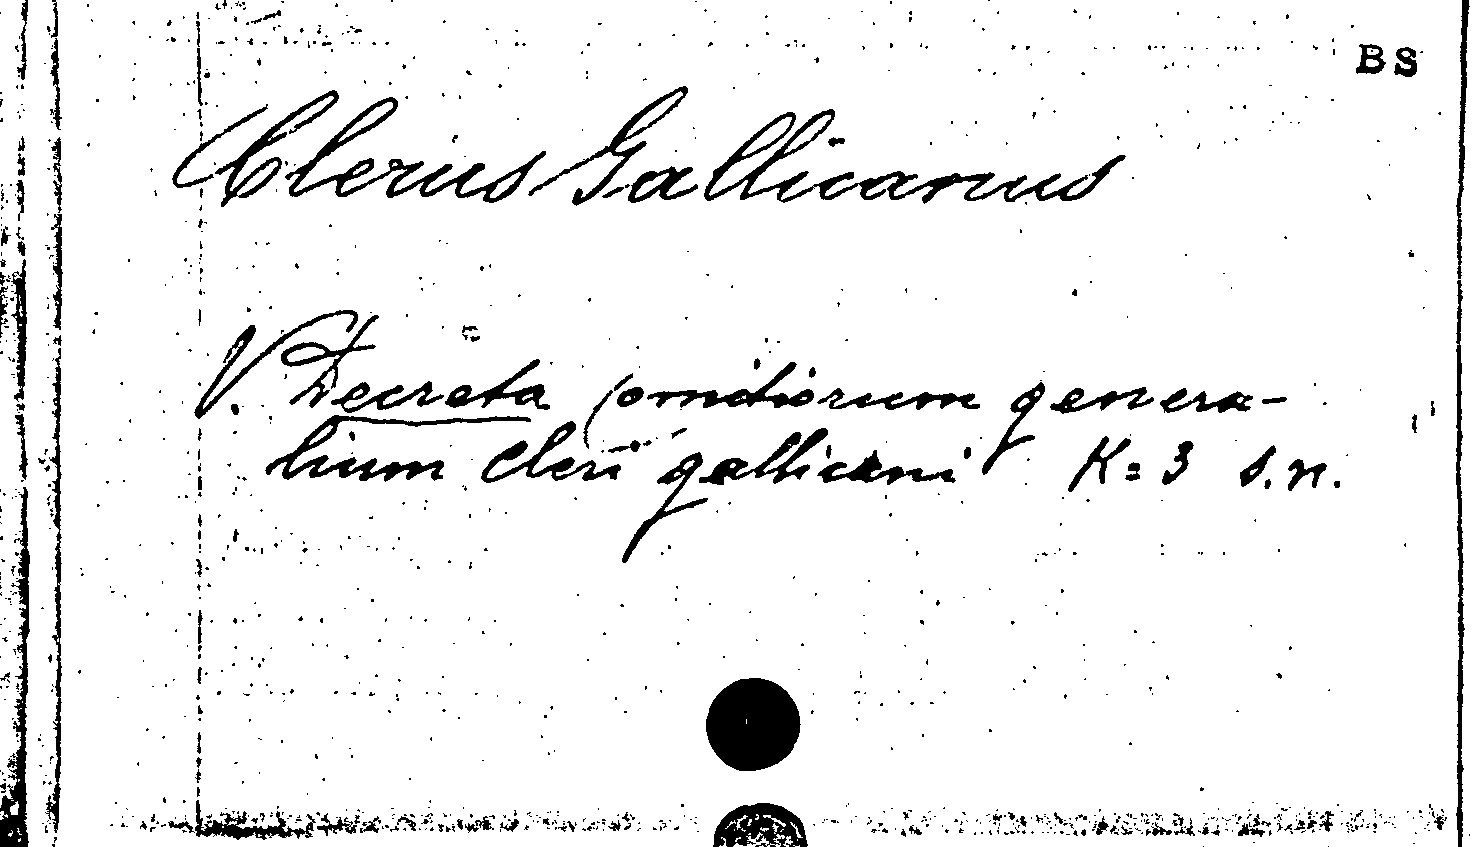 BS
Clerus Gallicanus
V. Decreta comitiorum genera-
lium cleri gallicani K=3 s.n.